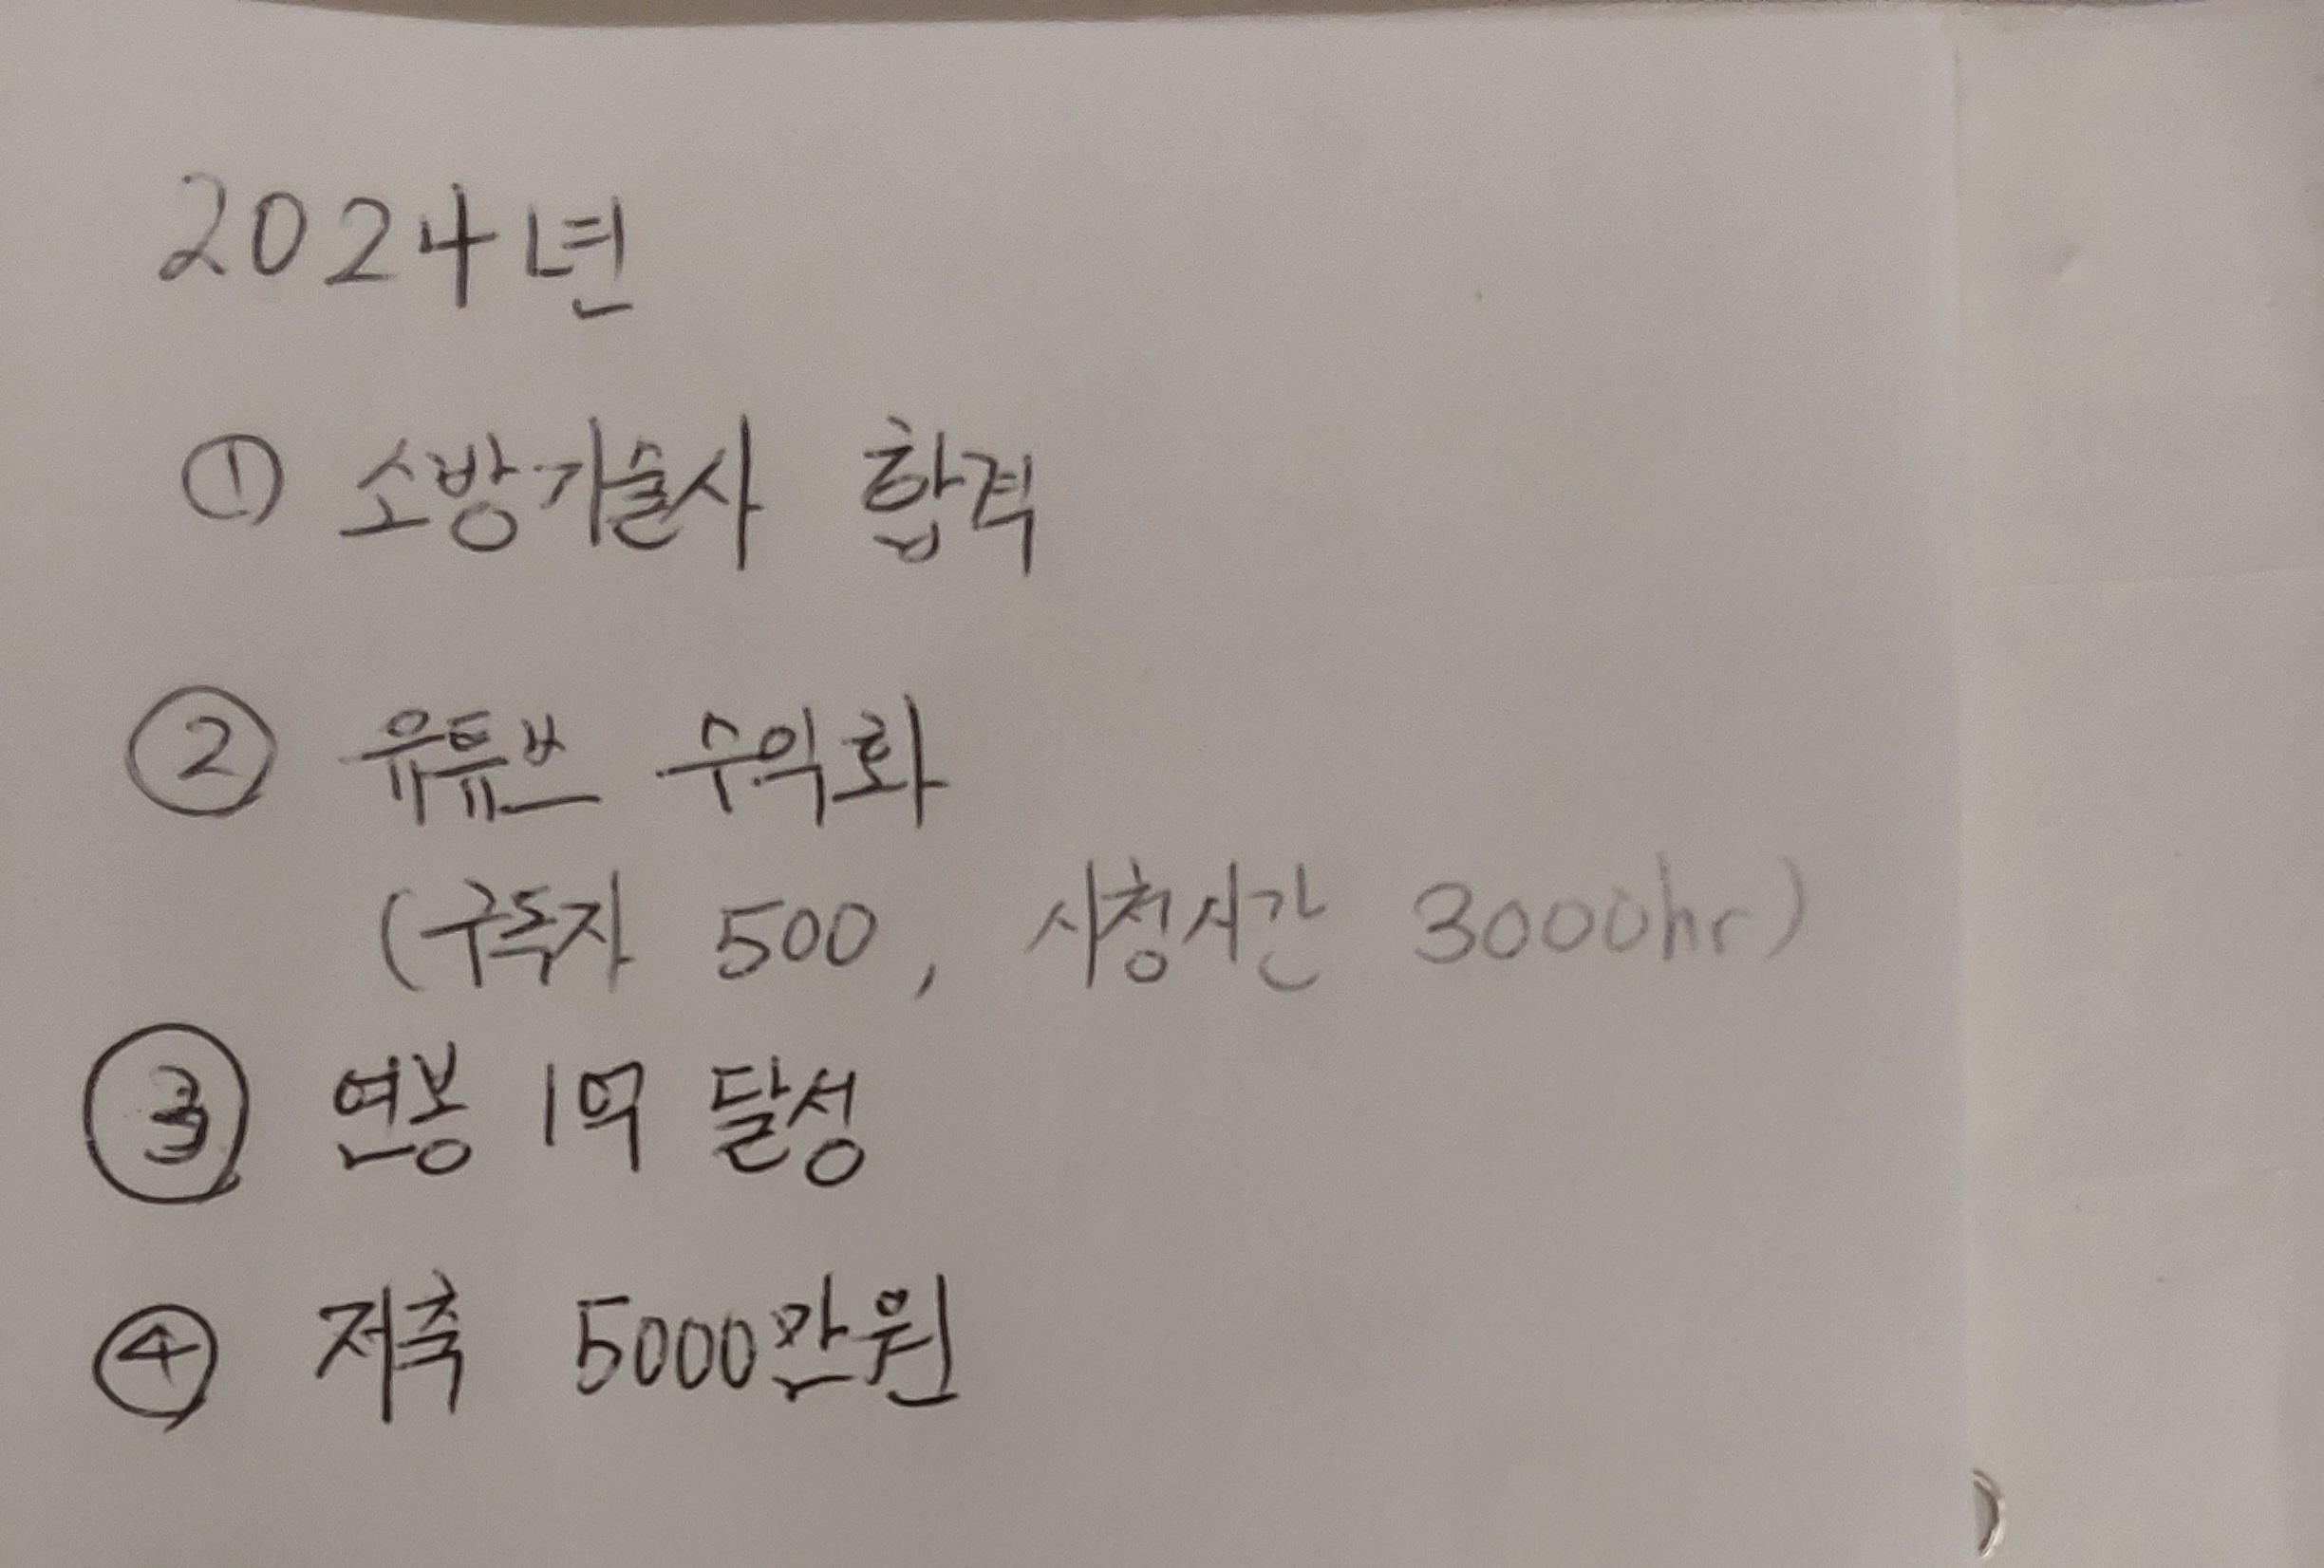 2024년
① 소방기술사 합격
② 유튜브 수익화
(구독자 500, 시청시간 3000hr)
③ 연봉 1억 달성
④ 저축 5000만원